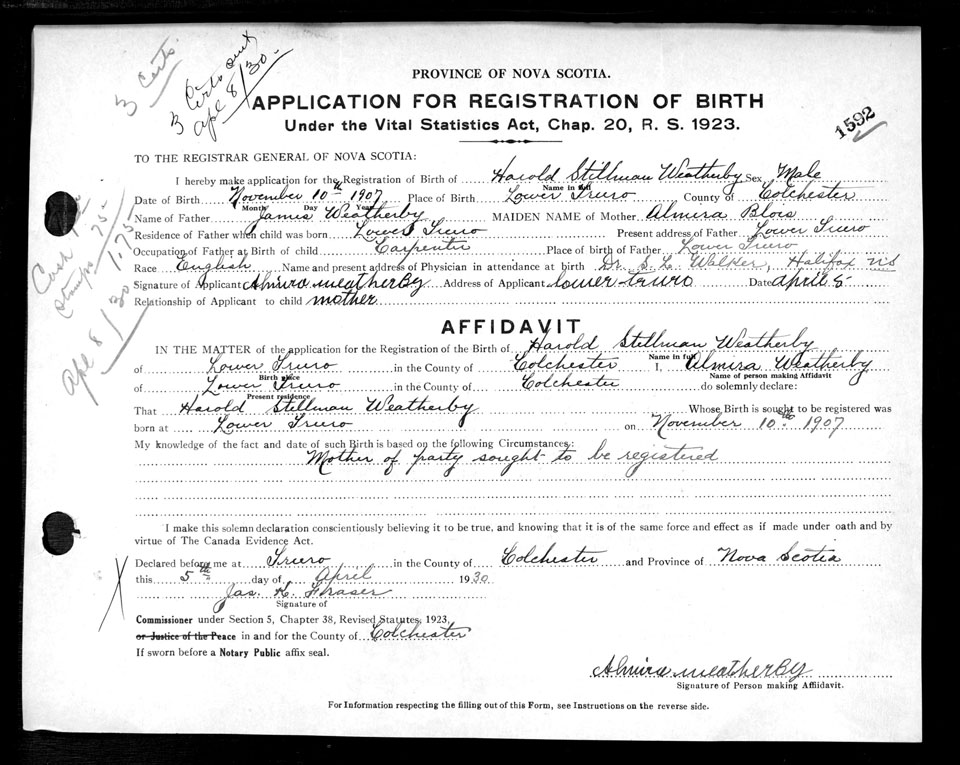 3 Certs.
3 Certs out
Apl 8/30.
PROVINCE OF NOVA SCOTIA.
APPLICATION FOR REGISTRATION OF BIRTH
Under the Vital Statistics Act, Chap. 20, R. S. 1923.
1592
TO THE REGISTRAR GENERAL OF NOVA SCOTIA:
I hereby make application for the Registration of Birth of Harold Stillman Weatherby Sex Male
Name in full
Date of Birth November 10th 1907 Place of Birth Lower Truro County of Colchester
Month Day Year
Name of Father James Weatherby MAIDEN NAME of Mother Almira Blois
Residence of Father when child was born Lower Truro Present address of Father Lower Truro
Occupation of Father at Birth of child Carpenter Place of birth of Father Lower Truro
Race English Name and present address of Physician in attendance at birth Dr. S. L. Walker, Halifax N.S
Signature of Applicant Almira weatherBy Address of Applicant Lower truro Date April 5
Relationship of Applicant to child mother
Cash
Stamps .75-
1.75
Apl 8/30
AFFIDAVIT
IN THE MATTER of the application for the Registration of the Birth of Harold Stillman Weatherby
Name in full
of Lower Truro in the County of Colchester I, Almira Weatherby
Birth place Name of person making Affidavit
of Lower Truro in the County of Colchester do solemnly declare:
Present residence
That Harold Stillman Weatherby Whose Birth is sought to be registered was
born at Lower Truro on November 10th 1907
My knowledge of the fact and date of such Birth is based on the following Circumstances:
Mother of party sought to be registered
I make this solemn declaration conscientiously believing it to be true, and knowing that it is of the same force and effect as if made under oath and by
virtue of The Canada Evidence Act.
Declared before me at Truro in the County of Colchester and Province of Nova Scotia
this 5th day of April 1930
Jas. K. Fraser
Signature of
Commissioner under Section 5, Chapter 38, Revised Statutes, 1923.
or Justice of the Peace in and for the County of Colchester
If sworn before a Notary Public affix seal.
Almira weatherBy
Signature of Person making Affidavit.
For Information respecting the filling out of this Form, see Instructions on the reverse side.